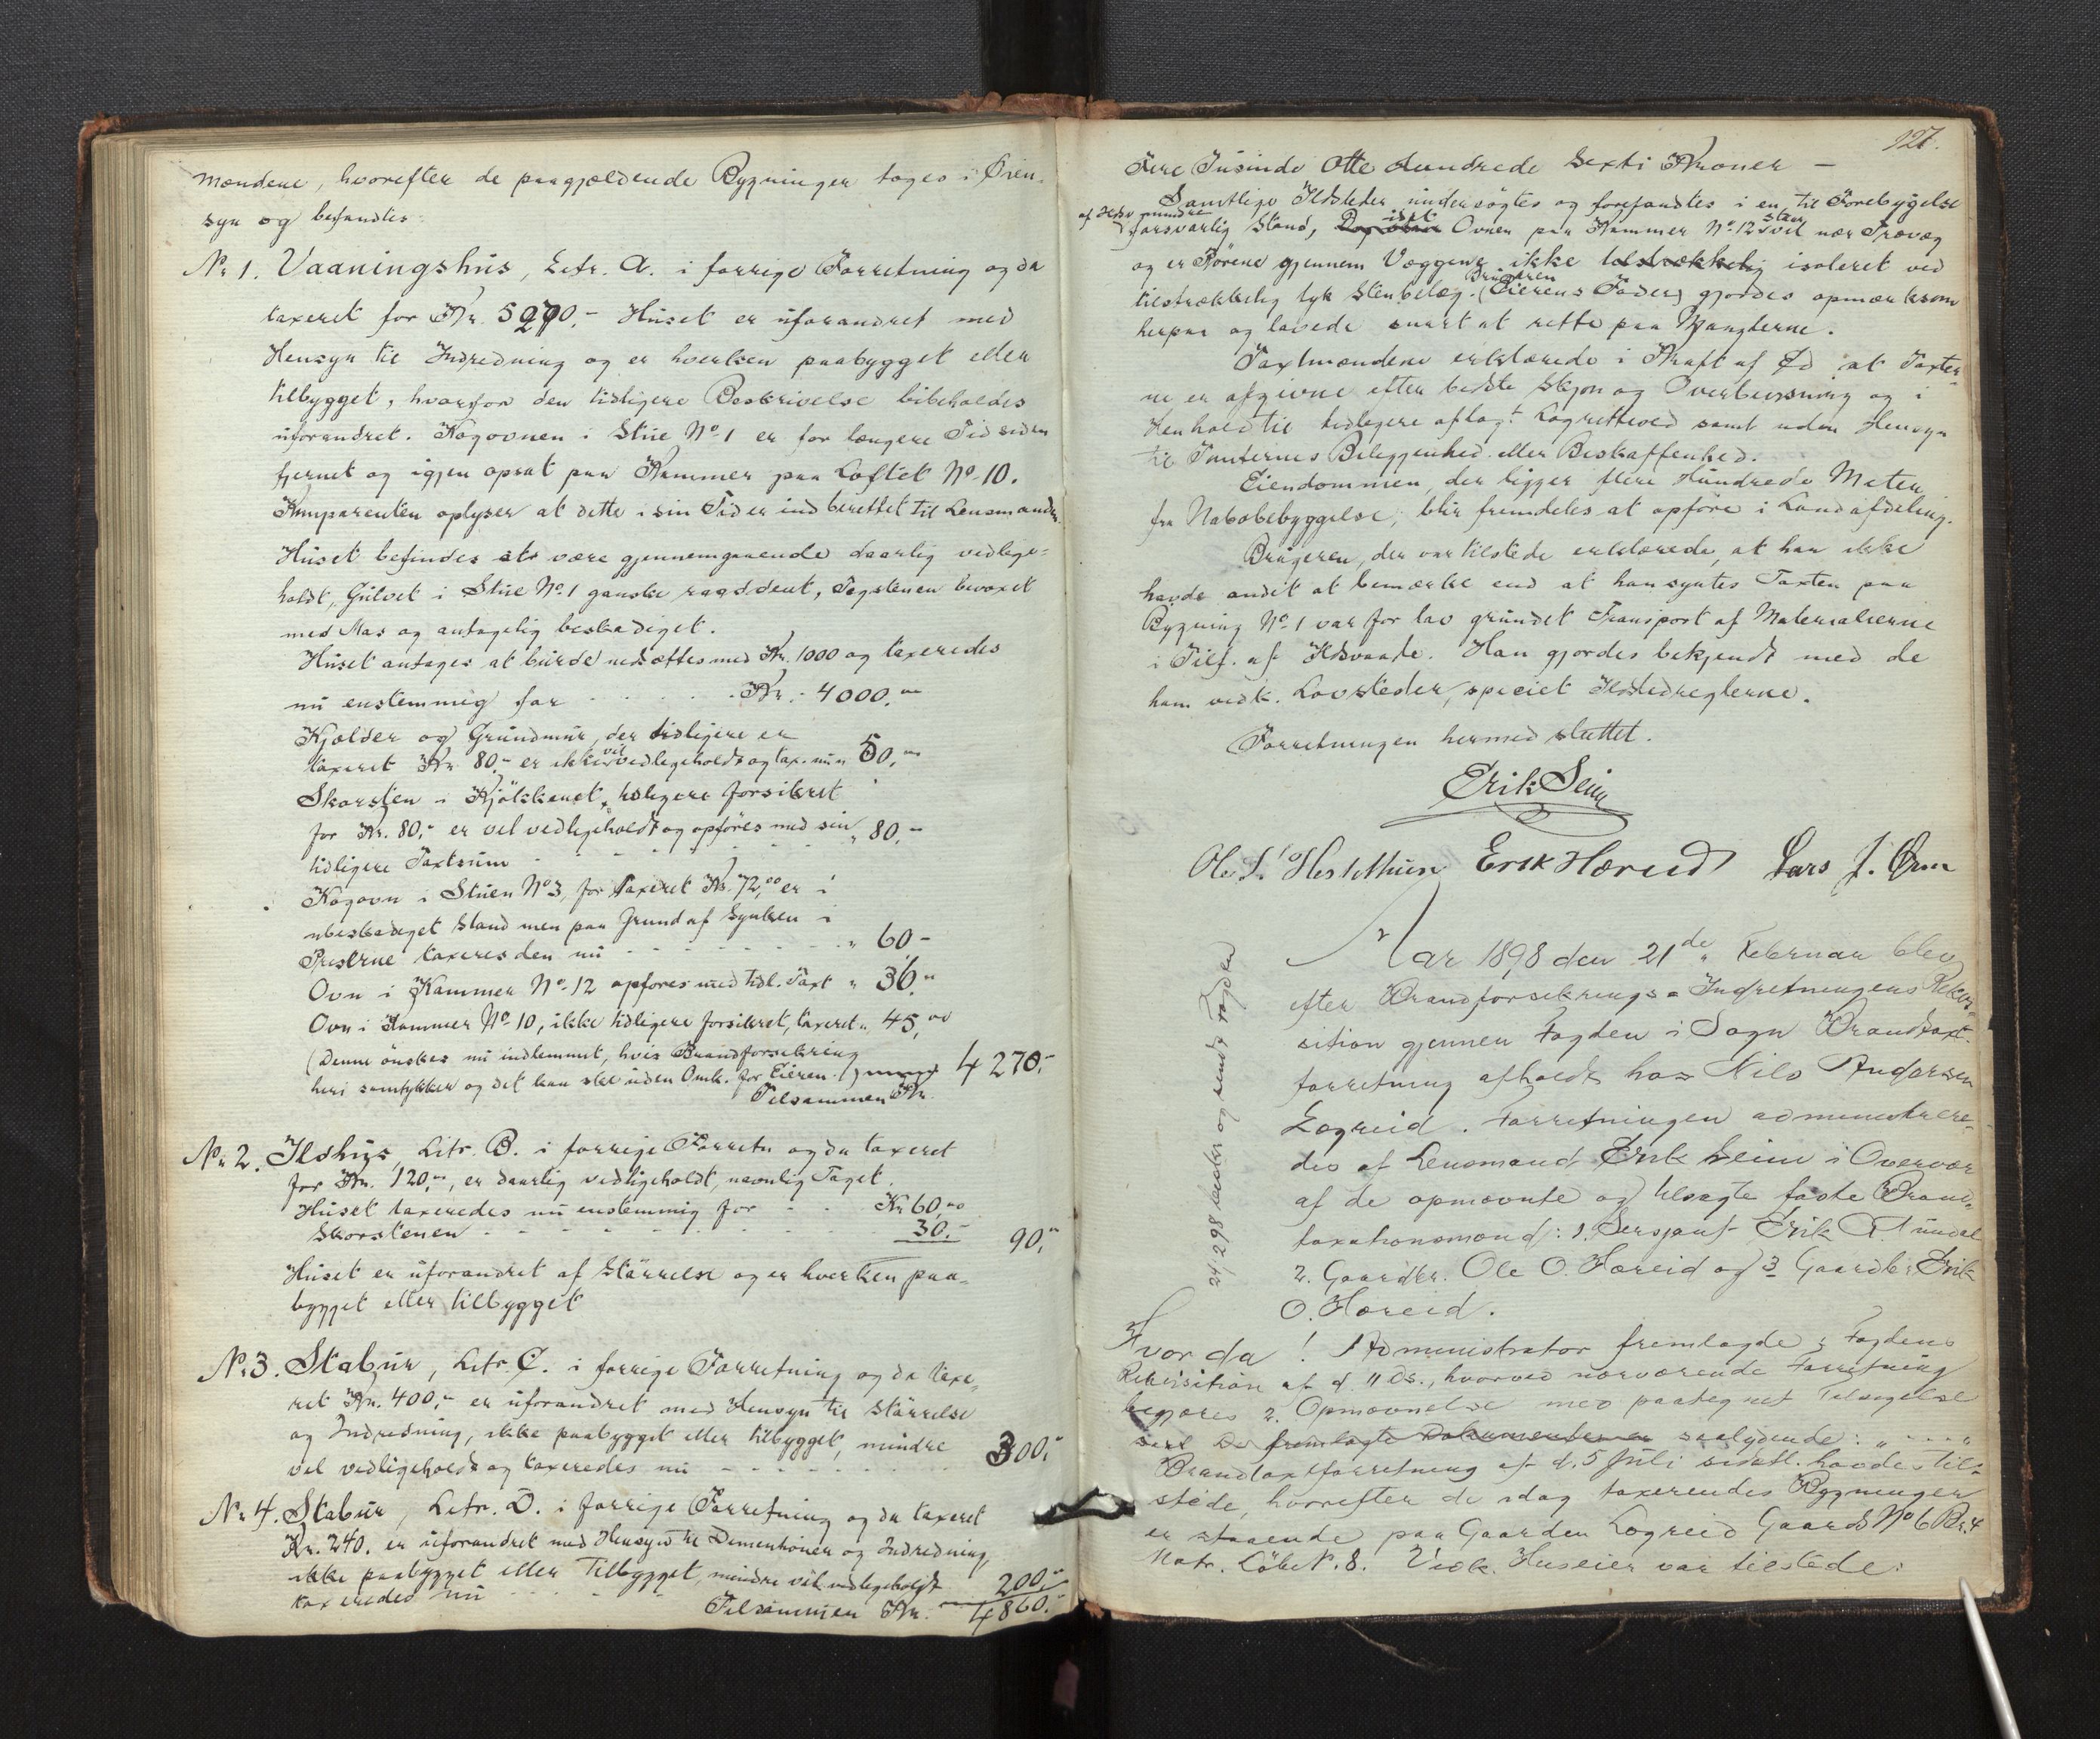 mændene, hvorefter de paagjældende Bygninger toges i Øien-
syn og befandtes:
No 1. Vaaningshus, Litr. A. i forrige Forretning og da
taxeret for Kr. 5270.- Huset er uforandret med
Hensyn til Indredning og er hverken paabygget eller
tilbygget, hvorfor den tidligere Beskrivelse bibeholdes
uforandret. Kogovnen i Stue No 1 er for længere Tid siden
fjernet og igjen opsat paa Kammer paa Loftet No 10.
Komparenten oplyser at dette i sin Tid er indberettet til Lensmanden.
Huset befindes at være gjennemgaaende daarlig vedlige-
holdt, Gulvet i Stue No 1 ganske raaddent, Tagstenen bevoxet
med Mos og antagelig beskadiget.
Huset antages at burde nedsættes med Kr. 1000 og taxeredes
nu enstemmig for . . . . . Kr. 4000."
Kjælder og Grundmur, der tidligere er
taxeret Kr. 80,- er ikke vel vedligeholdt og tax. nu " 50,"
Skorsten i Kjøkkenet, tidligere forsikret
for Kr. 80,- er vel vedligeholdt og opføres med sin
tidligere Taxtsum - - - - - " 80.-
Kogovn i Stuen No 3, før taxeret Kr. 72,00 er i
ubeskadiget Stand men paa Grund af Synken i
Priserne taxeres den nu - - - - - " 60-
Ovn i Kammer No 12 opføres med tidl. Taxt " 36."
Ovn i Kammer No 10, ikke tidligere forsikret, taxeret " 45,00
(Denne ønskes nu indlemmet, hvis Brandforsikring
heri samtykker og det kan ske uden Omk. for Eieren.) 4270.-
Tilsammen Kr.
No 2. Ildhus, Litr. B. i forrige Forretn og da taxeret
for Kr. 120,-, er daarlig vedligeholdt, navnlig Taget.
Huset taxeredes nu enstemmig for - - Kr 60,00
Skorstenen - - - - - 30.- 90,"
Huset er uforandret af Størrelse og er hverken paa-
bygget eller tilbygget
No 3. Stabur, Litr. C. i forrige Forretning og da taxe-
ret Kr. 400,- er uforandret med Hensyn til Størrelse
og Indredning, ikke paabygget eller tilbygget, mindre
vel vedligeholdt og taxeredes nu - - - - - 300,"
No 4. Stabur, Litr. D. i forrige Forretning og da taxeret
Kr. 240. er uforandret med Hensyn til Dimentioner og Indredning,
ikke paabygget eller Tilbygget, mindre vel vedligeholdt
taxeredes nu - - - - 200,-
Tilsammen Kr. 4860.-
127.
Fire Tusinde Otte Hundrede Sexti Kroner —
Samtlige Ildsteder undersøgtes og forefandtes i en til Forebygelse
af Ildsv mindre forsvarlig Stand, idet Ovnen paa Kammer No 12 staar vel nær Trævæg
og er Rörene gjennem Væggene ikke tilstrækkelig isoleret ved
tilstrækkelig tyk Stenbelæg. Brugeren (Eierens Fader) gjordes opmærksom
herpaa og lovede snart at rette paa Manglerne.
Taxtmændene erklærede i Kraft af Ed at Taxter-
ne er afgivne efter bedste Skjøn og Overbevisning og i
Henhold til tidligere aflagt Lagrettesed samt uden Hensyn
til Tomternes Beliggenhed eller Beskaffenhed.
Eiendommen, der ligger flere Hundrede Meter
fra Nabobebyggelse, blir fremdeles at opføre i Landafdeling.
Brugeren, der var tilstede erklærede, at han ikke
havde andet at bemærke end at han syntes Taxten paa
Bygning No 1 var for lav grundet Transport af Materialierne
i Tilf. af Ildsvaade. Han gjordes bekjendt med de
ham vedk. Lovsteder, speciet Ildstedreglerne.
Forretningen hermed sluttet.
Erik Seim
Ole L. Hestethun Erik Hæreid Lars J. Ørn
24/2 98 beskr og sendt Fogden
Aar 1898 den 21de Februar blev
efter Brandforsikrings-Indretningens Rekvi-
sition gjennem Fogden i Sogn Brandtaxt-
forretning afholdt hos Nils Andersen
Lægreid. Forretningen administrere-
des af Lensmand Erik Seim i Overvær
af de opnævnte og tilsagte faste Brand-
taxationsmænd: 1. Sersjant Erik A. Nundal
2. Gaardbr. Ole O. Hæreid og 3 Gaardbr Erik
O. Hæreid.
Hvor da! Administrator fremlagde 1. Fogdens
Rekvisition af d. 11 ds., hvorved nærværende Forretning
begjæres 2. Opnævnelse med paategnet Tilsigelse
De fremlagte Dokumenter er saalydende: " - - - "
Brandtaxtforretning af d. 5 Juli sidstl. havdes til-
stede, hvorefter de idag taxerendes Bygninger
er staaende paa Gaarden Lægreid Gaards No 6 Br. 4
Matr. Løbe N. 8. Vedk. Huseier var tilstede: